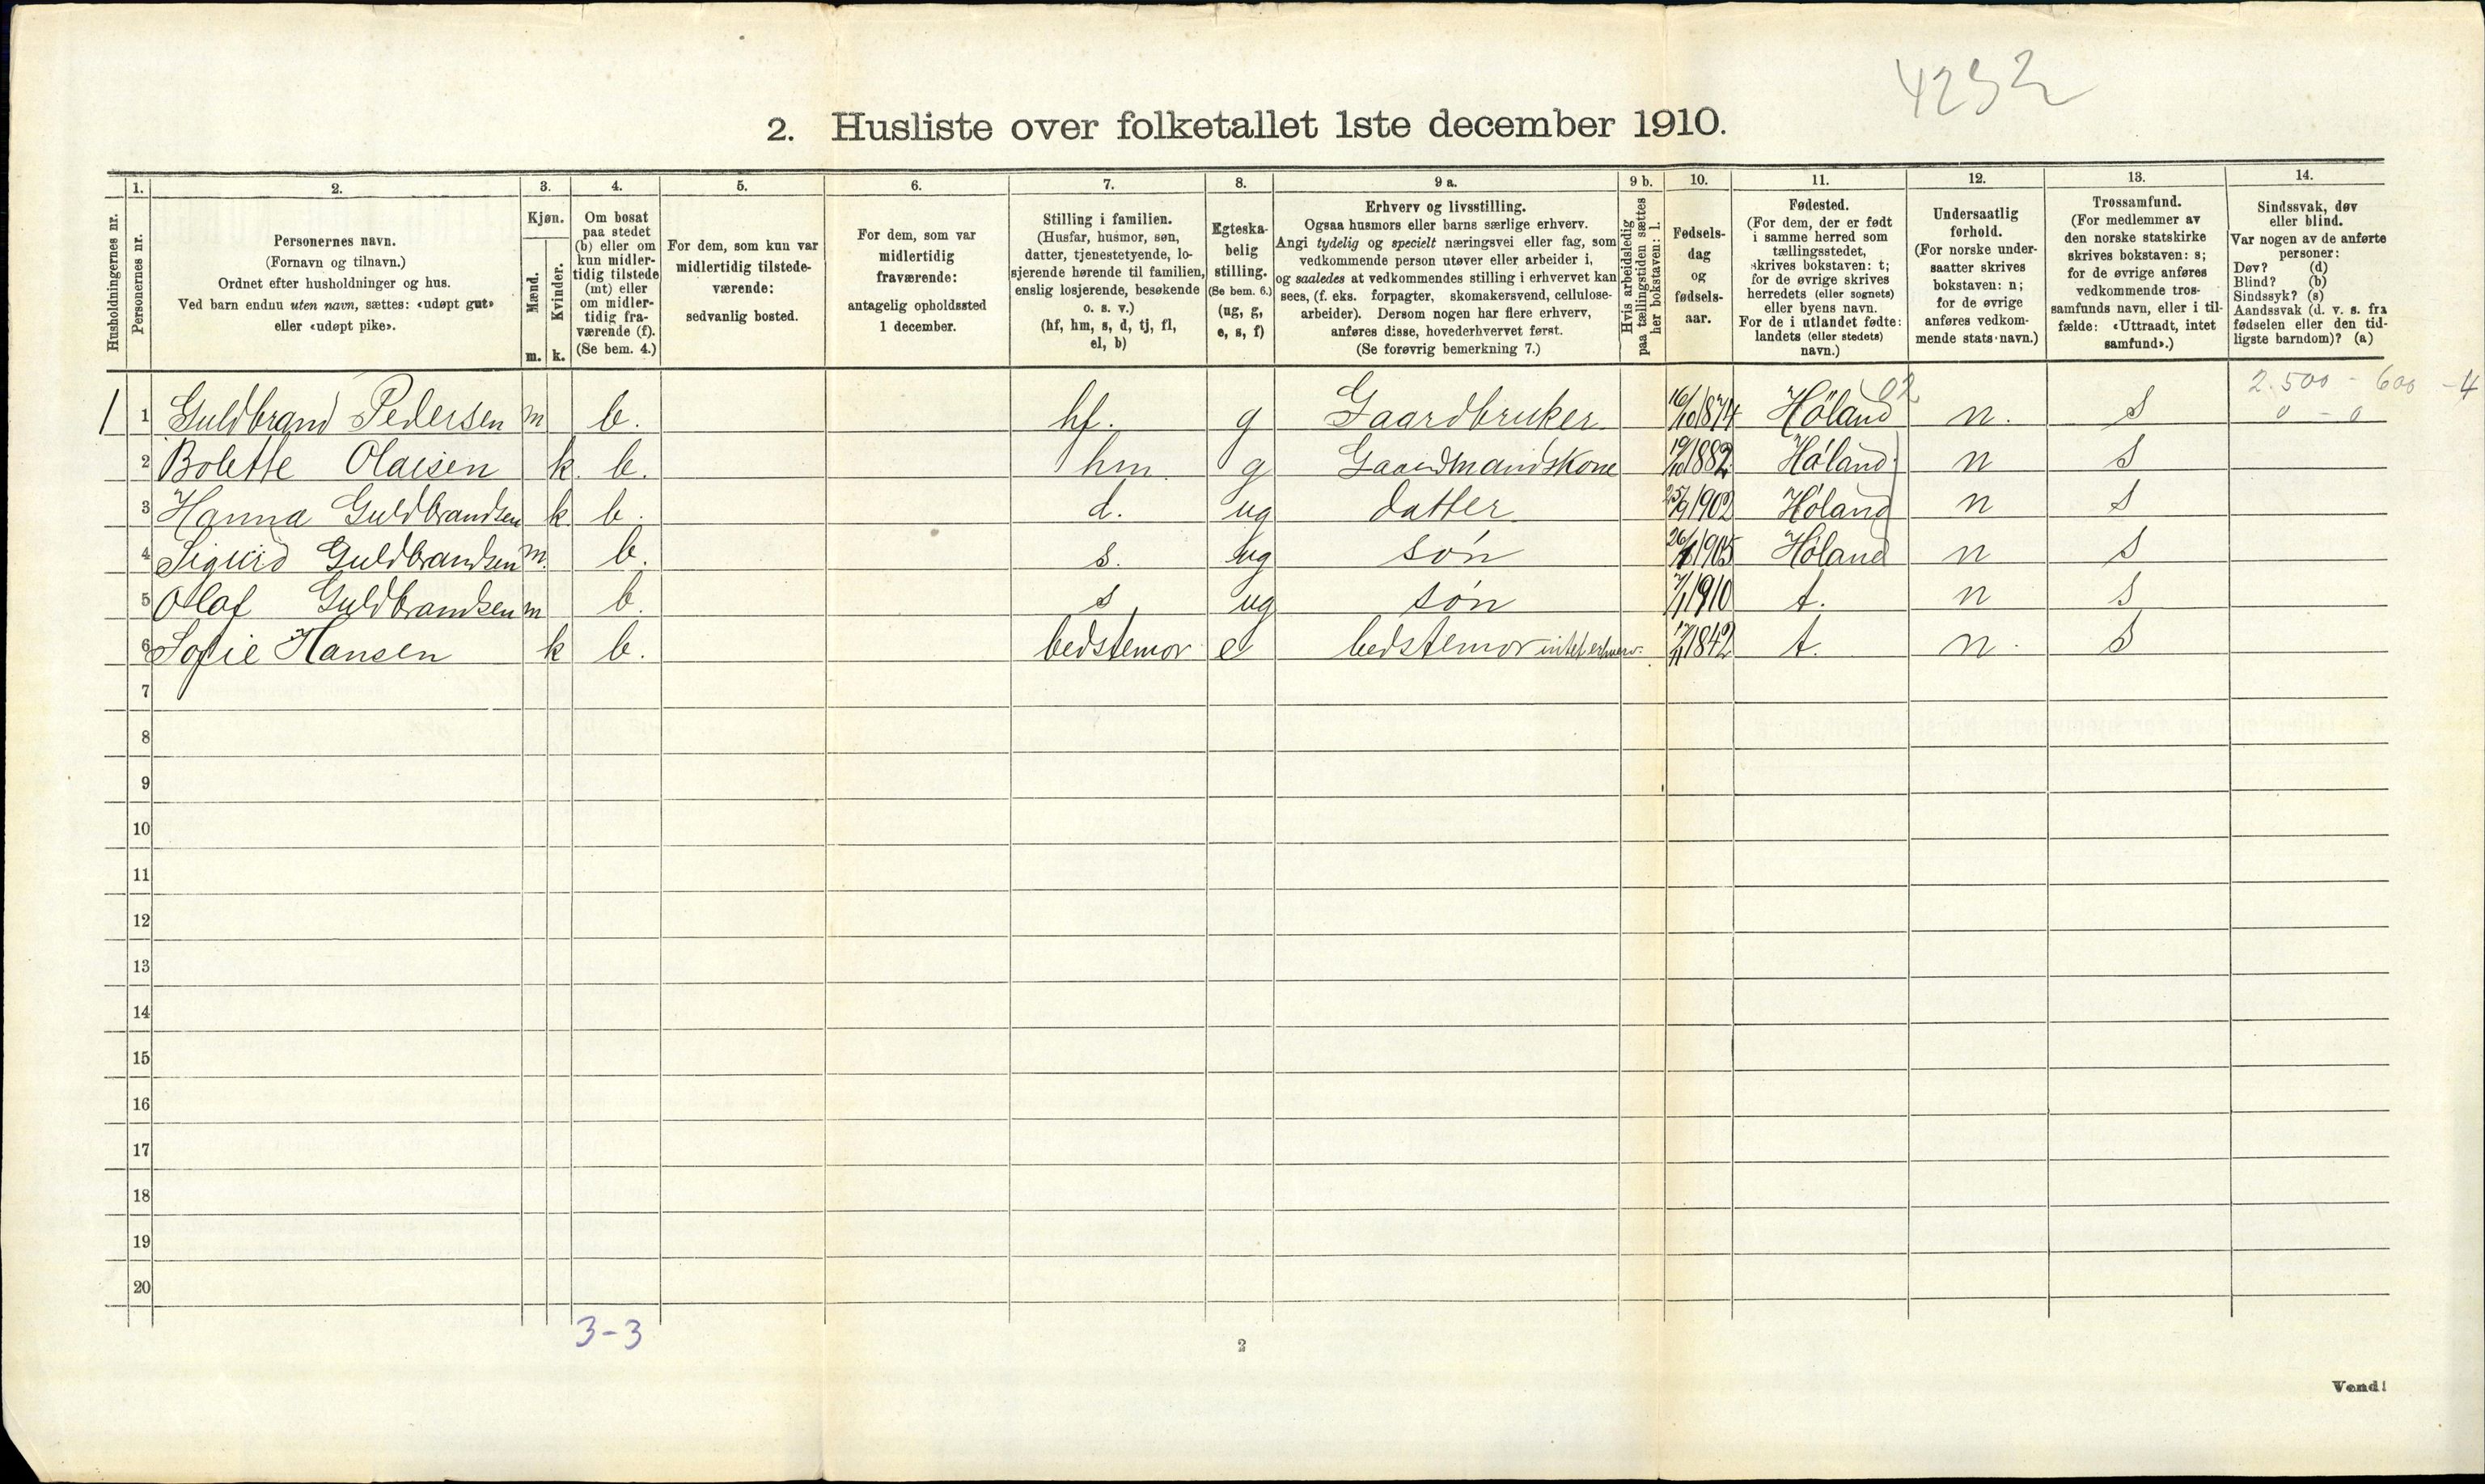 4232
2. Husliste over folketallet 1ste december 1910.
Husholdningernes nr.
1.
Personernes nr.
2.
Personernes navn.
(Fornavn og tilnavn.)
Ordnet efter husholdninger og hus.
Ved barn endnu uten navn, sættes: «udøpt gut»
eller «udøpt pike».
3.
Kjøn.
Mænd.
Kvinder.
m. k.
4.
Om bosat
paa stedet
(b) eller om
kun midler-
tidig tilstede
(mt) eller
om midler-
tidig fra-
værende (f).
(Se bem. 4.)
5.
For dem, som kun var
midlertidig tilstede-
værende:
sedvanlig bosted.
6.
For dem, som var
midlertidig
fraværende:
antagelig opholdssted
1 december.
7.
Stilling i familien.
(Husfar, husmor, søn,
datter, tjenestetyende, lo-
sjerende hørende til familien,
enslig losjerende, besøkende
o. s. v.)
(hf, hm, s, d, tj, fl,
el, b)
8.
Egteska-
belig
stilling.
(Se bem. 6.)
(ug, g,
e, s, f)
9 a.
Erhverv og livsstilling.
Ogsaa husmors eller barns særlige erhverv.
Angi tydelig og specielt næringsvei eller fag, som
vedkommende person utøver eller arbeider i,
og saaledes at vedkommendes stilling i erhvervet kan
sees, (f. eks. forpagter, skomakersvend, cellulose-
arbeider). Dersom nogen har flere erhverv,
anføres disse, hovederhvervet først.
(Se forøvrig bemerkning 7.)
9 b.
Hvis arbeidsledig
paa tællingstiden sættes
her bokstaven: l.
10.
Fødsels-
dag
og
fødsels-
aar.
11.
Fødested.
(For dem, der er født
i samme herred som
tællingsstedet,
skrives bokstaven: t;
for de øvrige skrives
herredets (eller sognets)
eller byens navn.
For de i utlandet fødte:
landets (eller stedets)
navn.)
12.
Undersaatlig
forhold.
(For norske under-
saatter skrives
bokstaven: n;
for de øvrige
anføres vedkom-
mende stats navn.)
13.
Trossamfund.
(For medlemmer av
den norske statskirke
skrives bokstaven: s;
for de øvrige anføres
vedkommende tros-
samfunds navn, eller i til-
fælde: «Uttraadt, intet
samfund».)
14.
Sindssvak, døv
eller blind.
Var nogen av de anførte
personer:
Døv? (d)
Blind? (b)
Sindssyk? (s)
Aandssvak (d. v. s. fra
fødselen eller den tid-
ligste barndom)? (a)
02 2.500 - 600 - 4
1 1 Guldbrand Pedersen m b. hf. g Gaardbruker 16/10 1874 Höland n. s 0 - 0
2 Bolette Olaisen k. b. hm g Gaardmandskone 19/10 1882 Høland n s
3 Hanna Guldbrandsen k b. d. ug datter 25/9 1902 Høland n s
4 Sigurd Guldbrandsen m. b. s. ug søn 1905 Høland n s
5 Olaf Guldbrandsen m b. s. ug søn 1910 t. n s
6 Sofie Hansen k b. bedstemor e bedstemor intet erhverv. 1842 t. n. s
7
8
9
10
11
12
13
14
15
16
17
18
19
20
3-3
2
Vend!